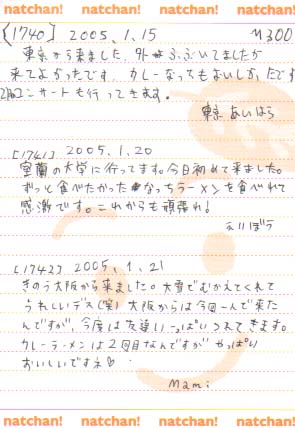 natchan! natchan! natchan! natchan!
[1740] 2005.1.15
東京から来ました。外はふぶいてましたが
来てよかったです。カレーなってもおいしかったです
コンサートも行ってきます。
東京 あいはら
[1741] 2005.1.20
室蘭の大学に行ってます。今日初めて来ました。
ずっと食べたかった なっちラーメンを食べれて
感激です。これからも頑張れ!
[1742] 2005.1.21
きのう大阪から来ました。大雪でむかえてくれて
うれしいデス(笑) 大阪からは今回一人で来た
んですが、今度は友達いっぱいつれてきます。
カレーラーメンは2回目なんですが やっぱり
おいしいですネ♡
Mami
natchan! natchan! natchan! natchan!